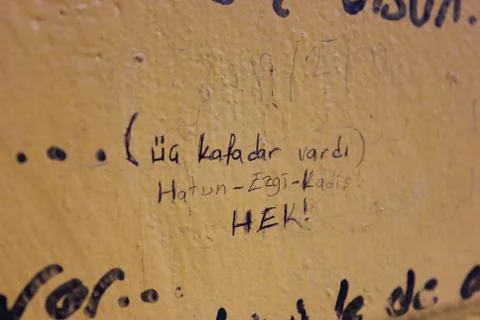 olsun.
...(üç kafadar vardı)
Hatun-Ezgi-Kadiş
HEK!
var...
de